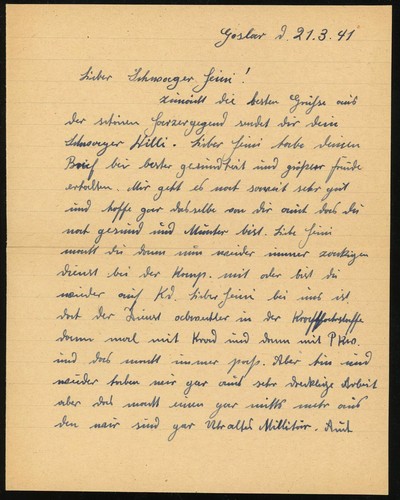 Goslar d. 21.3.41
Lieber Schwager Heini!
Zunächst die besten Grüße aus
der schönen Harzergegend sendet dir dein
Schwager Willi. Lieber Heini habe deinen
Brief bei bester gesundheit und größter freude
erhalten. Mir geht es noch soweit sehr gut
und hoffe gar dasselbe von dir auch das du
noch gesund und Munter bist. Heini
machst du dann nun wieder immer
dienst bei der Komp. mit oder bist du
wieder auf Kd. Lieber Heini bei uns ist
dort der Dienst in der
dann mal mit Krad und dann mit Pkw.
und das macht immer paß. Aber hin und
wieder haben wir gar auch sehr dreckige Arbeit
aber das macht einen gar nichts mehr aus
den wir sind gar Uhraltes Millitär. Auch